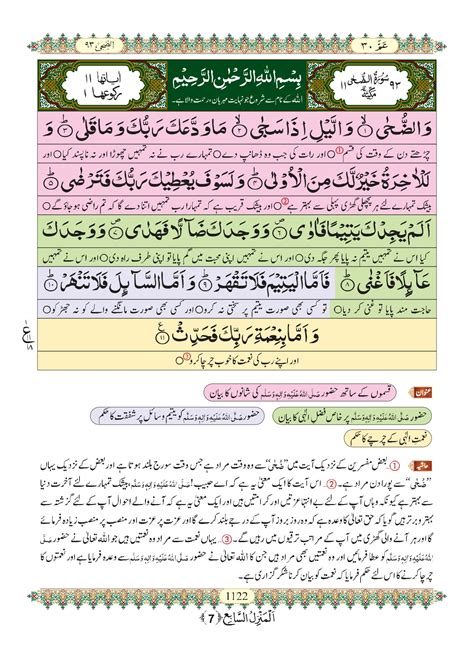 الضحى ٩٣
عَمَّ ٣٠
اٰیاتها ١١
رکوعها ١
بِسْمِ اللّٰهِ الرَّحْمٰنِ الرَّحِیْمِ
اللہ کے نام سے شروع جو نہایت مہربان، رحمت والا ہے۔
٩٣ سُوْرَةُ الضُّحٰی ١١
مَکِّیَّةٌ
وَالضُّحٰىۙ(۱) وَالَّیْلِ اِذَا سَجٰىۙ(۲) مَا وَدَّعَكَ رَبُّكَ وَمَا قَلٰىؕ(۳) وَ
چڑھتے دن کے وقت کی قسم ① ○ اور رات کی جب وہ ڈھانپ دے ○ تمہارے رب نے نہ تمہیں چھوڑا اور نہ ناپسند کیا ○ اور
لَلْاٰخِرَةُ خَیْرٌ لَّكَ مِنَ الْاُوْلٰىؕ(۴) وَلَسَوْفَ یُعْطِیْكَ رَبُّكَ فَتَرْضٰىؕ(۵)
بیشک تمہارے لئے ہر پچھلی گھڑی پہلی سے بہتر ہے ② ○ اور بیشک قریب ہے کہ تمہارا رب تمہیں اتنا دے گا کہ تم راضی ہو جاؤ گے ○
اَلَمْ یَجِدْكَ یَتِیْمًا فَاٰوٰى۪(۶) وَوَجَدَكَ ضَآلًّا فَهَدٰى۪(۷) وَوَجَدَكَ
کیا اس نے تمہیں یتیم نہ پایا پھر جگہ دی ○ اور اس نے تمہیں اپنی محبت میں گم پایا تو اپنی طرف راہ دی ○ اور اس نے تمہیں
عَآىٕلًا فَاَغْنٰىؕ(۸) فَاَمَّا الْیَتِیْمَ فَلَا تَقْهَرْؕ(۹) وَاَمَّا السَّآىٕلَ فَلَا تَنْهَرْؕ(۱۰)
حاجت مند پایا تو غنی کر دیا ○ تو کسی بھی صورت یتیم پر سختی نہ کرو ○ اور کسی بھی صورت مانگنے والے کو نہ جھڑکو ○
وَاَمَّا بِنِعْمَةِ رَبِّكَ فَحَدِّثْ۠(۱۱)
اور اپنے رب کی نعمت کا خوب چرچا کرو ③ ○
عنوان
قسموں کے ساتھ حضور صَلَّی اللہُ عَلَیْہِ وَاٰلِہٖ وَسَلَّم کی شانوں کا بیان
حضور صَلَّی اللہُ عَلَیْہِ وَاٰلِہٖ وَسَلَّم پر خاص فضلِ الٰہی کا بیان
حضور صَلَّی اللہُ عَلَیْہِ وَاٰلِہٖ وَسَلَّم کو یتیم و سائل پر شفقت کا حکم
نعمتِ الٰہی کے چرچے کا حکم
حاشیہ ①... بعض مفسرین کے نزدیک آیت میں ”ضُحٰی“ سے وہ وقت مراد ہے جس وقت سورج بلند ہوتا ہے اور بعض کے نزدیک یہاں
”ضُحٰی“ سے پورا دن مراد ہے۔ ②... اس آیت کا ایک معنی یہ ہے کہ اے حبیب! صَلَّی اللہُ عَلَیْہِ وَاٰلِہٖ وَسَلَّم، بیشک تمہارے لئے آخرت دنیا
سے بہتر ہے کیونکہ وہاں آپ کے لئے بے انتہا عزتیں اور کرامتیں ہیں اور ایک معنی یہ ہے کہ آنے والے احوال آپ کے لئے گزشتہ سے
بہتر و برتر ہیں گویا کہ حق تعالیٰ کا وعدہ ہے کہ وہ روز بروز آپ کے درجے بلند کرے گا اور عزت پر عزت اور منصب پر منصب زیادہ فرمائے
گا اور ہر آنے والی گھڑی میں آپ کے مراتب ترقیوں میں رہیں گے۔ ③... یہاں نعمت سے مراد وہ نعمتیں ہیں جو اللہ تعالیٰ نے حضور صَلَّی
اللہُ عَلَیْہِ وَاٰلِہٖ وَسَلَّم کو عطا فرمائیں اور وہ نعمتیں بھی مراد ہیں جن کا اللہ تعالیٰ نے حضور صَلَّی اللہُ عَلَیْہِ وَاٰلِہٖ وَسَلَّم سے وعدہ فرمایا ہے اور نعمتوں کا
چرچا کرنے کا اس لئے حکم فرمایا کہ نعمت کو بیان کرنا شکر گزاری ہے۔
ع ١٨
1122
اَلْمَنْزِلُ السَّابِع ﴿7﴾